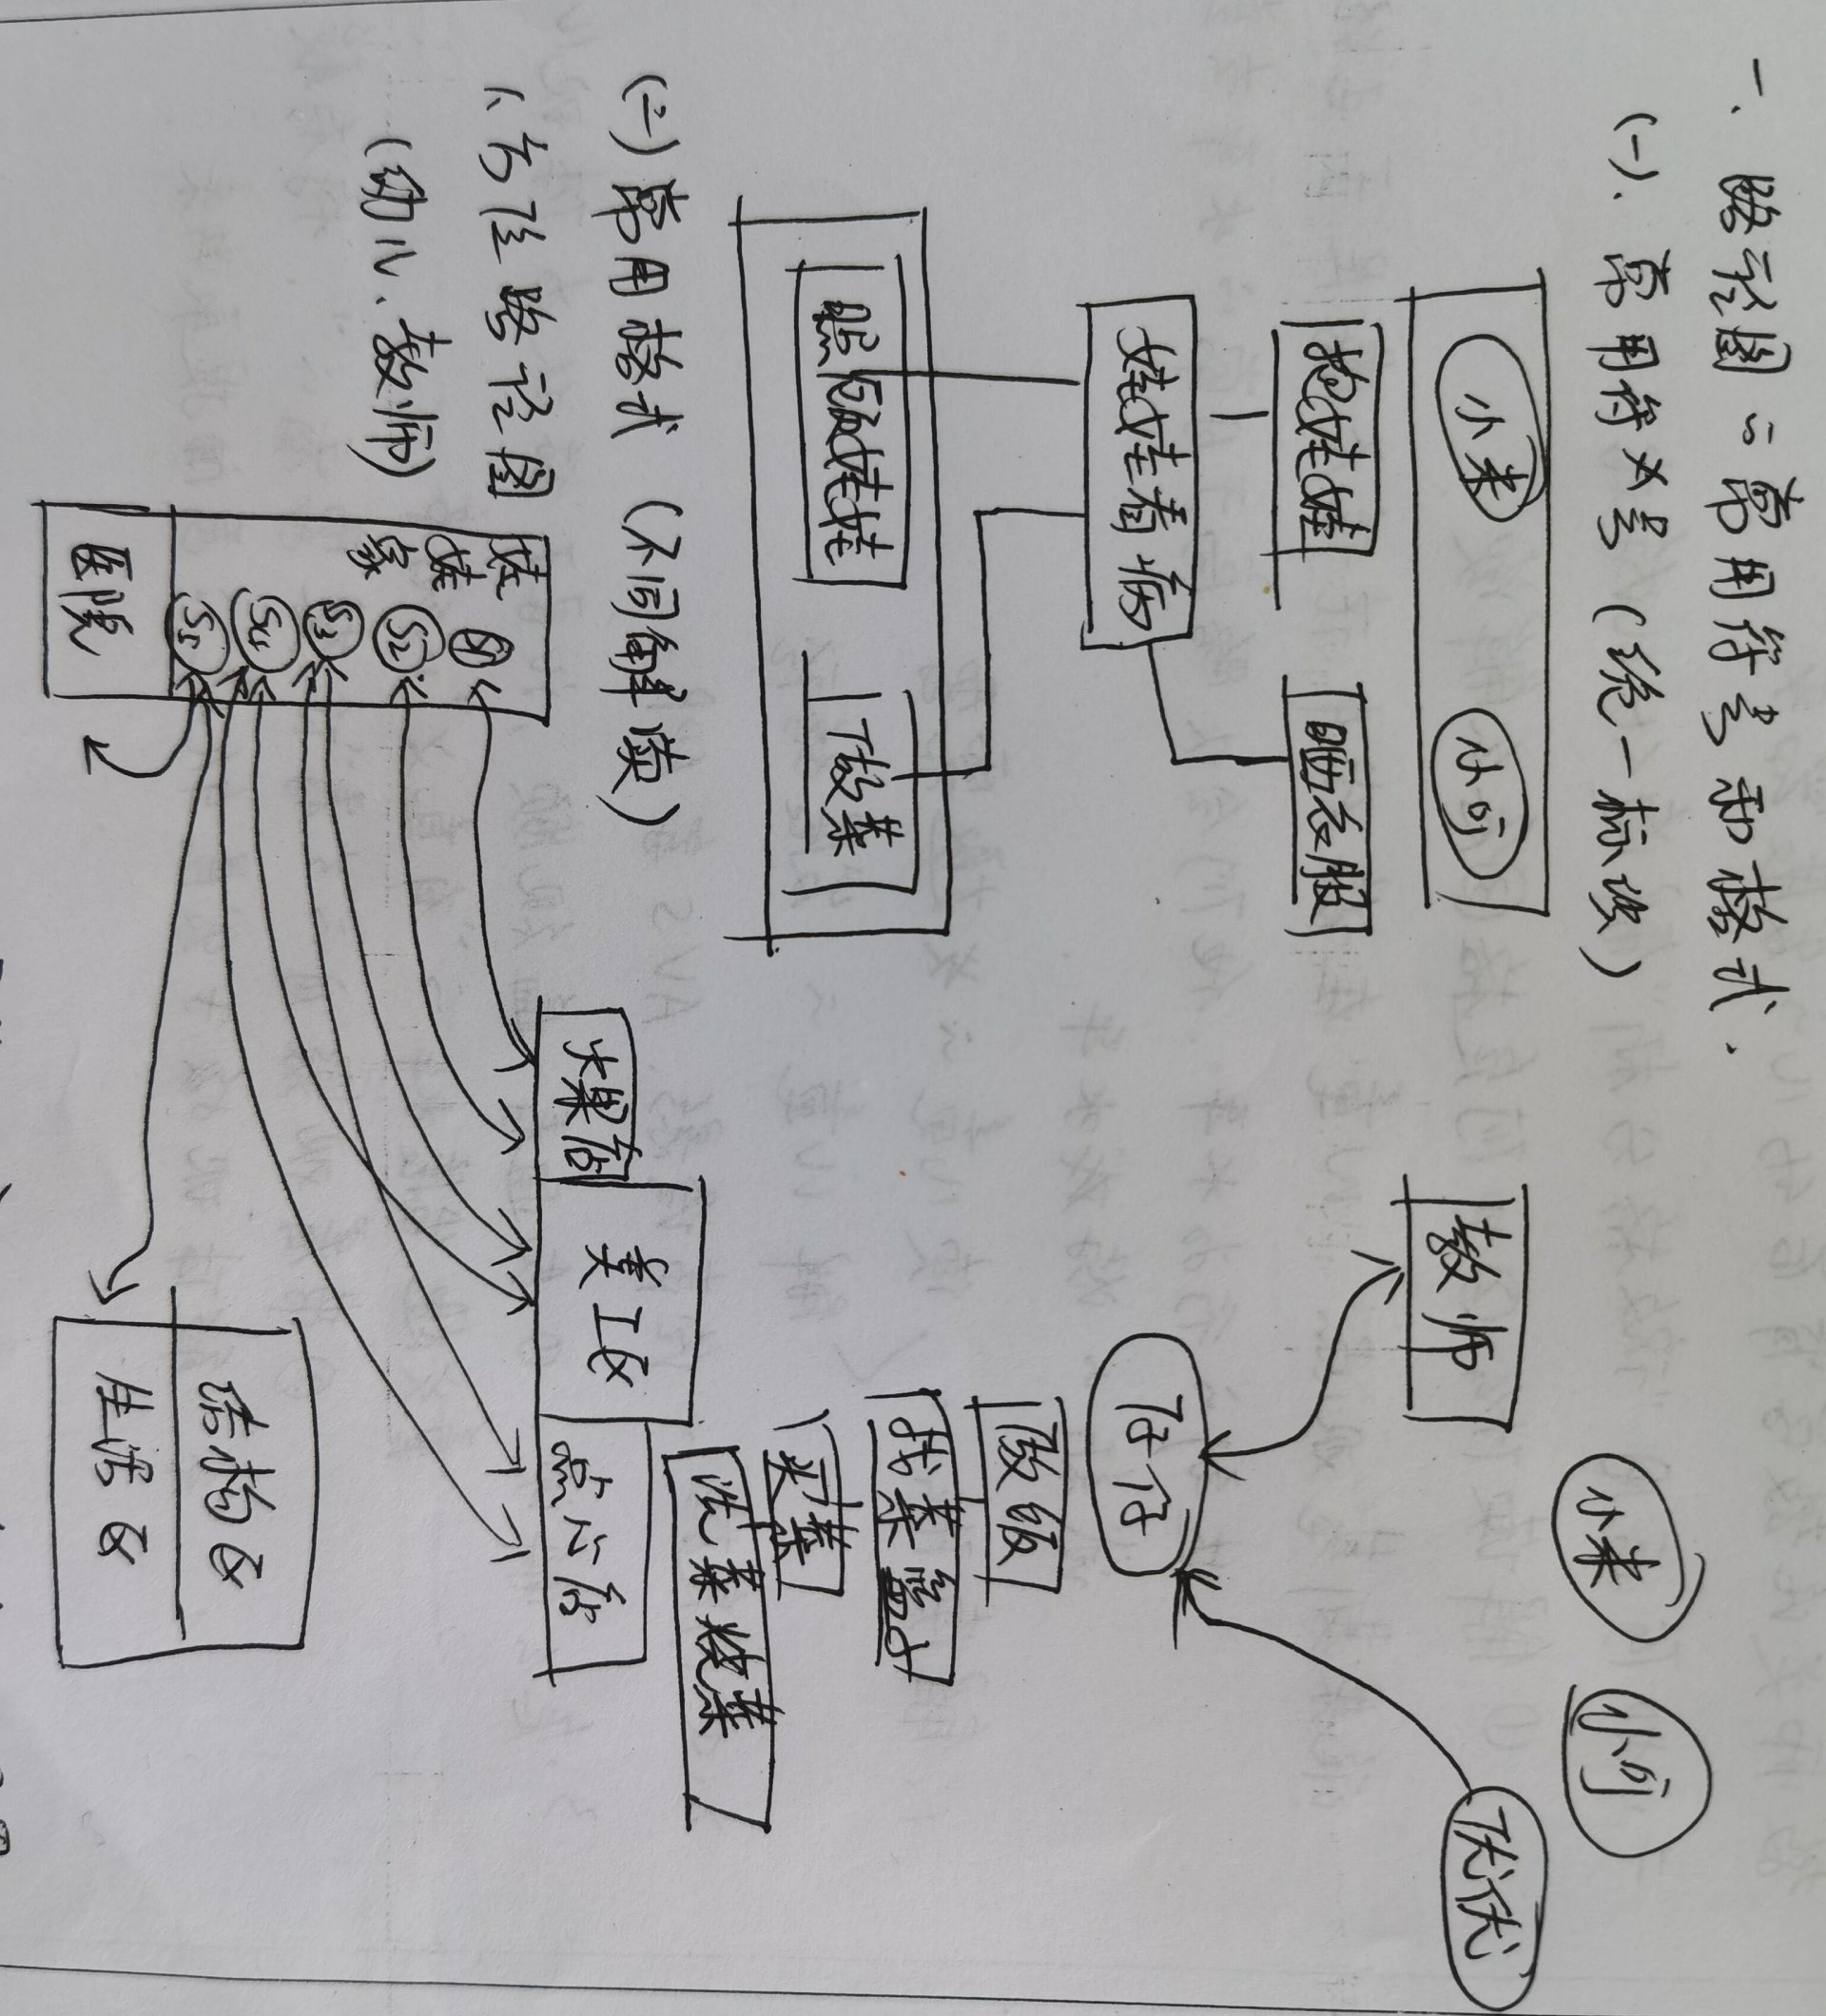 一、路径图：常用符号和格式.
(一)、常用符号（统一标识）
小米
小可
抱娃娃
晒衣服
娃娃看病
照顾娃娃
做菜
教师
小米
小可
优优
仔仔
做饭
找菜篮子
买菜
洗菜烧菜
(二) 常用格式（不同解读）
1、方位路径图
（幼儿、教师）
娃娃家
S1
S2
S3
S4
S5
医院
美工区
点心店
结构区
生活区